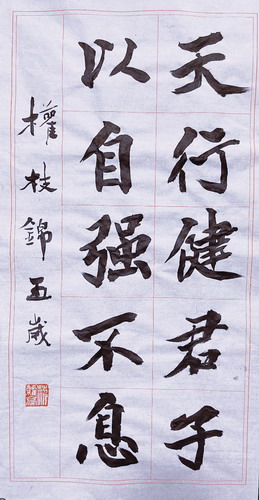 天行健君子
以自强不息
權枝錦五歲